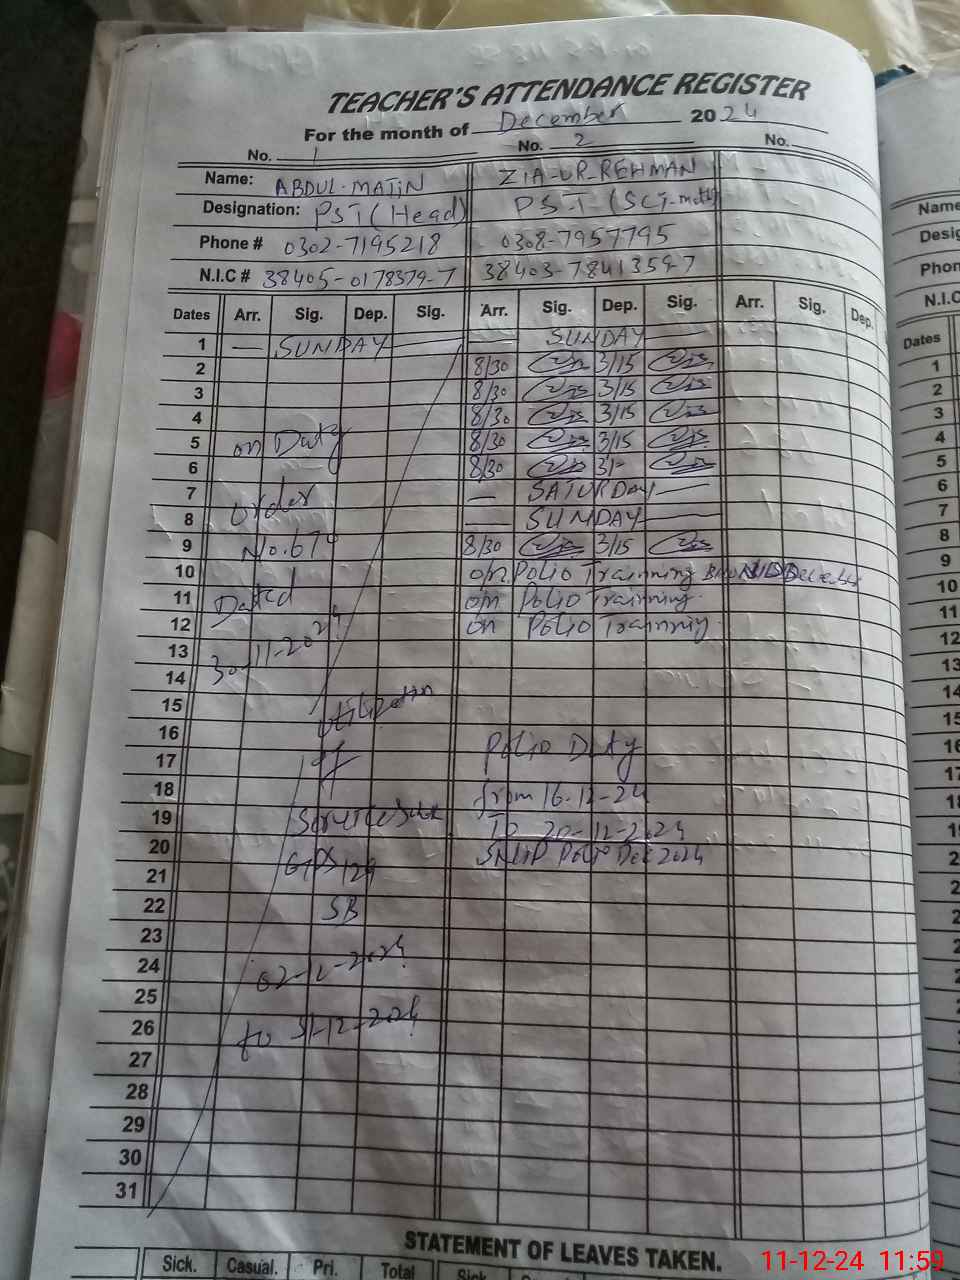 TEACHER'S ATTENDANCE REGISTER
For the month of December 2024
No. 1 No. 2 No.
Name: ABDUL-MATIN ZIA-UR-REHMAN
Designation: PST (Head) PST (SCI-math)
Phone # 0302-7195218 0308-7957795
N.I.C # 38405-0178379-7 38403-7841359-7
Dates Arr. Sig. Dep. Sig. Arr. Sig. Dep. Sig. Arr. Sig. Dep.
1 — SUNDAY — — SUNDAY —
2 8/30 3/15
3 8/30 3/15
4 8/30 3/15
5 on Duty 8/30 3/15
6 8/30
7 — SATURDay —
8 order — SUNDAY —
9 No. 8/30 3/15
10 on Polio Trainning
11 Dated on Polio Trainning
12 on Polio Trainning
13 30-11-2024
14
15
16 Polio Duty
17 of
18 from 16-12-24
19 To 20-12-2024
20 Polio Dec 2024
21 GPS 129
22 SB
23
24 02-12-2024
25
26 to 31-12-2024
27
28
29
30
31
STATEMENT OF LEAVES TAKEN.
Sick. Casual. Pri. Total Sick
Name
Phon
N.I.C
Dates
1
2
3
4
5
6
7
8
9
10
11
12
13
14
15
16
11-12-24 11:59